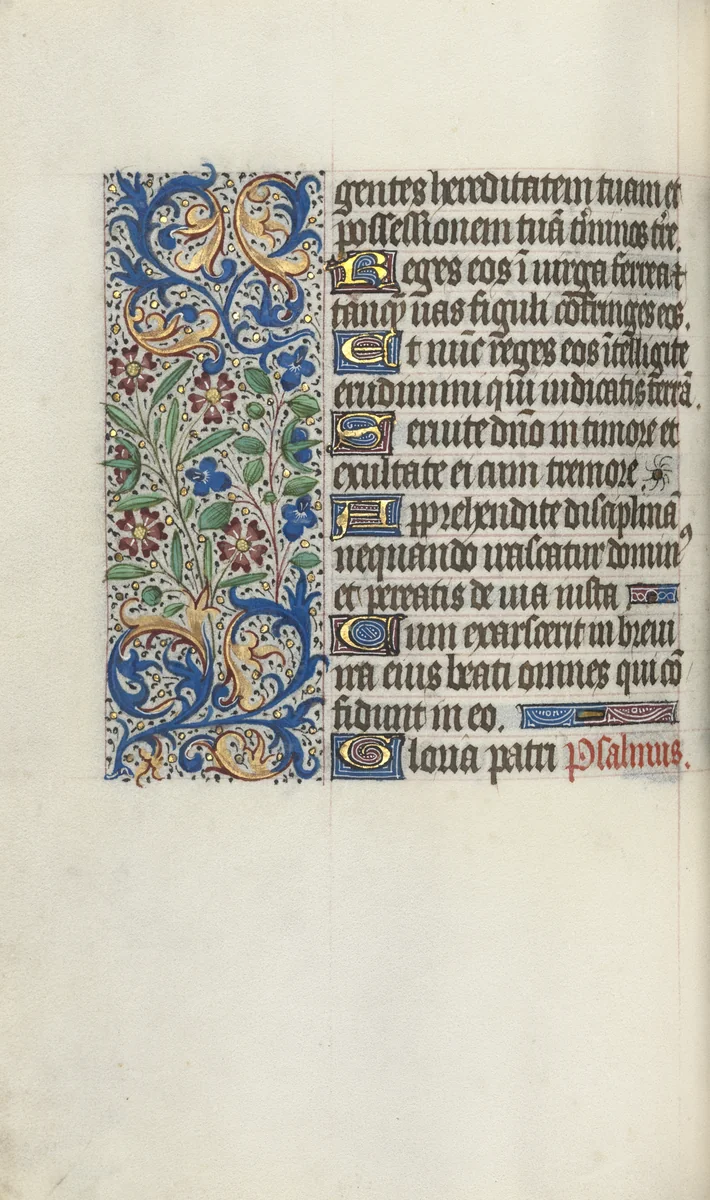 gentes hereditatem tuam et
possessionem tuã t̃minos tr̃e.
Reges eos ĩ uirga ferrea ⁊
tanq̃ uas figuli cõfringes eos.
Et nũc reges eos ĩtelligite
erudimini qui iudicatis terrã.
Seruite dño in timore et
exultate ei cum tremore.
Apprehendite disciplinã
nequando irascatur dominꝰ
et pereatis de uia iusta
Cum exarscerit in breui
ira eius beati omnes qui cõ
fidunt in eo.
Gloria patri Psalmus.